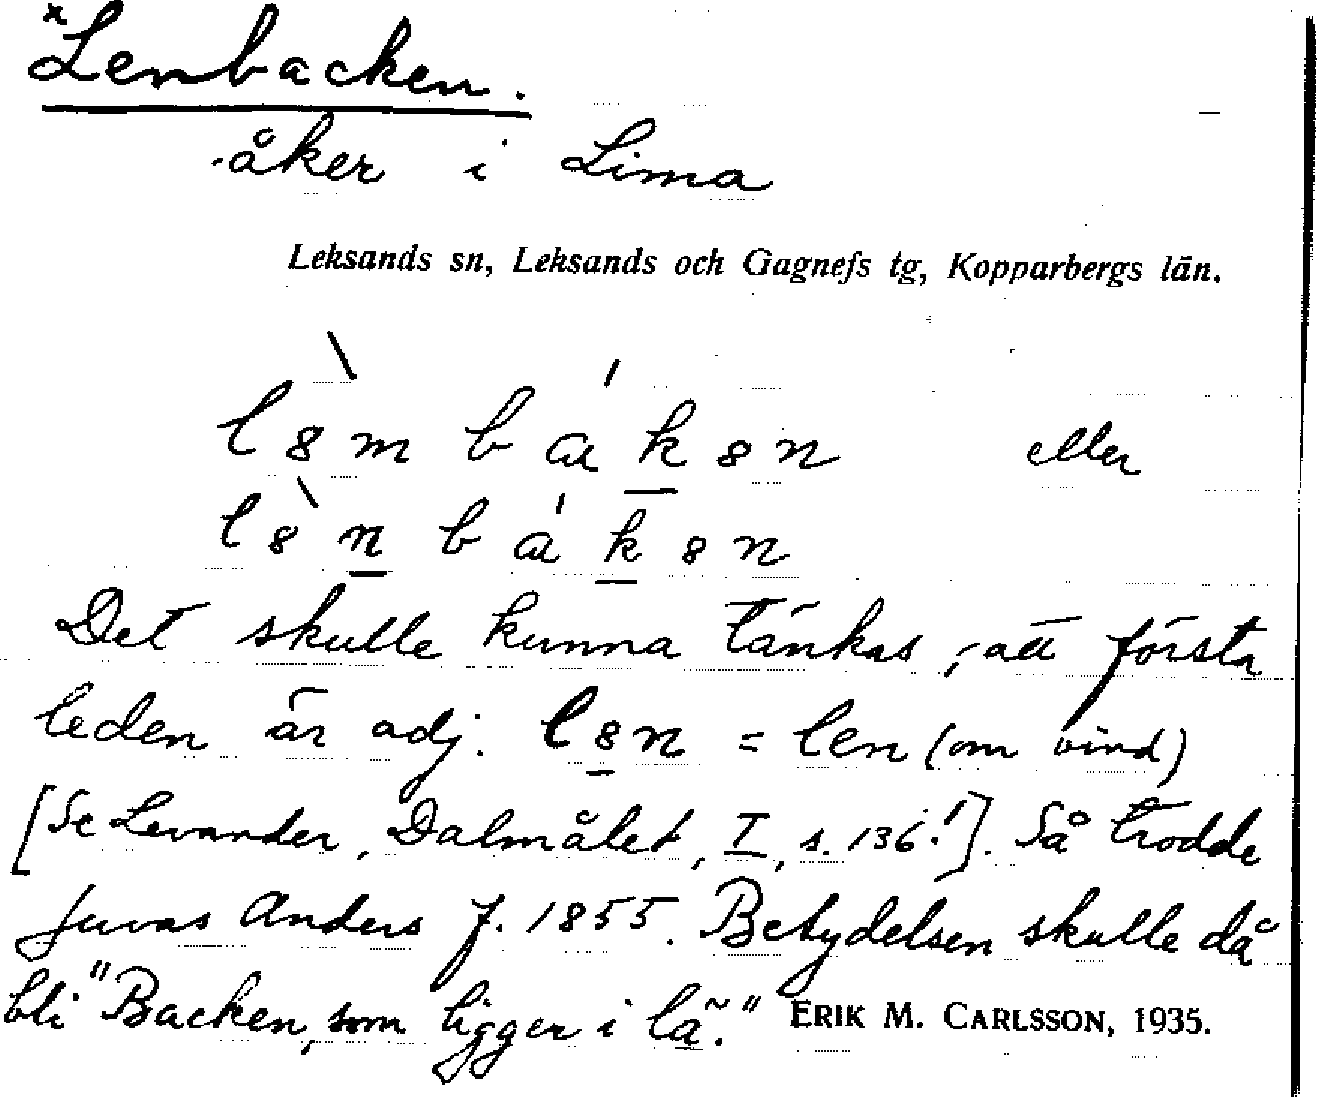 *Lenbacken.
åker i Lima
Leksands sn, Leksands och Gagnefs tg, Kopparbergs län.
eller
Det skulle kunna tänkas, att första
leden är adj. = len (om vind)
[Se Levander, Dalmålet, I, s. 136!]. Så trodde
Juvas Anders f. 1855. Betydelsen skulle då
bli "Backen, som ligger i lä."
ERIK M. CARLSSON, 1935.